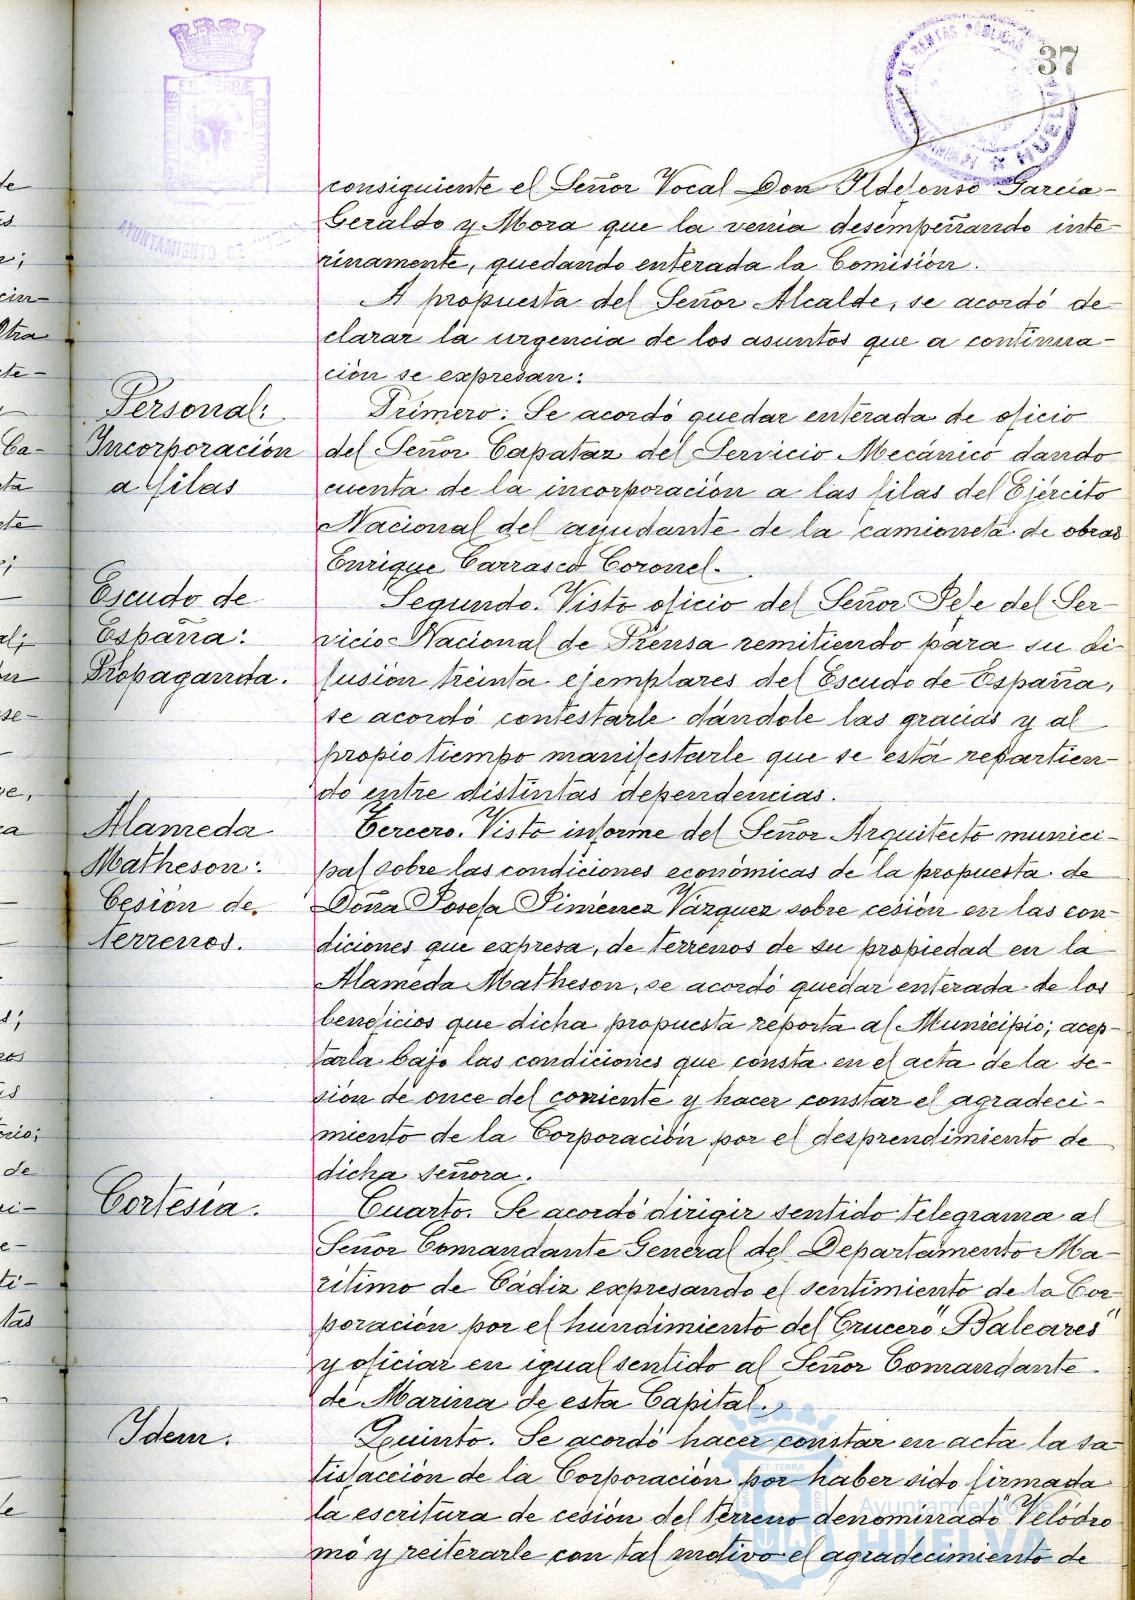 37
consiguiente el Señor Vocal Don Ildefonso García-
Geraldo y Mora que la venía desempeñando inte-
rinamente, quedando enterada la Comisión.
A propuesta del Señor Alcalde, se acordó de-
clarar la urgencia de los asuntos que a continua-
ción se expresan:
Personal:
Incorporación
a filas
Primero: Se acordó quedar enterada de oficio
del Señor Capataz del Servicio Mecánico dando
cuenta de la incorporación a las filas del Ejército
Nacional del ayudante de la camioneta de obras
Enrique Carrasco Coronel.
Escudo de
España:
Propaganda.
Segundo. Visto oficio del Señor Jefe del Ser-
vicio Nacional de Prensa remitiendo para su di-
fusión treinta ejemplares del Escudo de España,
se acordó contestarle dándole las gracias y al
propio tiempo manifestarle que se está repartien-
do entre distintas dependencias.
Alameda
Matheson:
Cesión de
terrenos.
Tercero. Visto informe del Señor Arquitecto munici-
pal sobre las condiciones económicas de la propuesta de
Doña Josefa Jiménez Vázquez sobre cesión en las con-
diciones que expresa, de terrenos de su propiedad en la
Alameda Matheson, se acordó quedar enterada de los
beneficios que dicha propuesta reporta al Municipio; acep-
tarla bajo las condiciones que consta en el acta de la se-
sión de once del corriente y hacer constar el agradeci-
miento de la Corporación por el desprendimiento de
dicha señora.
Cortesía.
Cuarto. Se acordó dirigir sentido telegrama al
Señor Comandante General del Departamento Ma-
rítimo de Cádiz expresando el sentimiento de la Cor-
poración por el hundimiento del Crucero "Baleares"
y oficiar en igual sentido al Señor Comandante
de Marina de esta Capital.
Idem.
Quinto. Se acordó hacer constar en acta la sa-
tisfacción de la Corporación por haber sido firmada
la escritura de cesión del terreno denominado "Velódro
mo y reiterarle con tal motivo el agradecimiento de
AYUNTAMIENTO DE
Ayuntamiento de
HUELVA